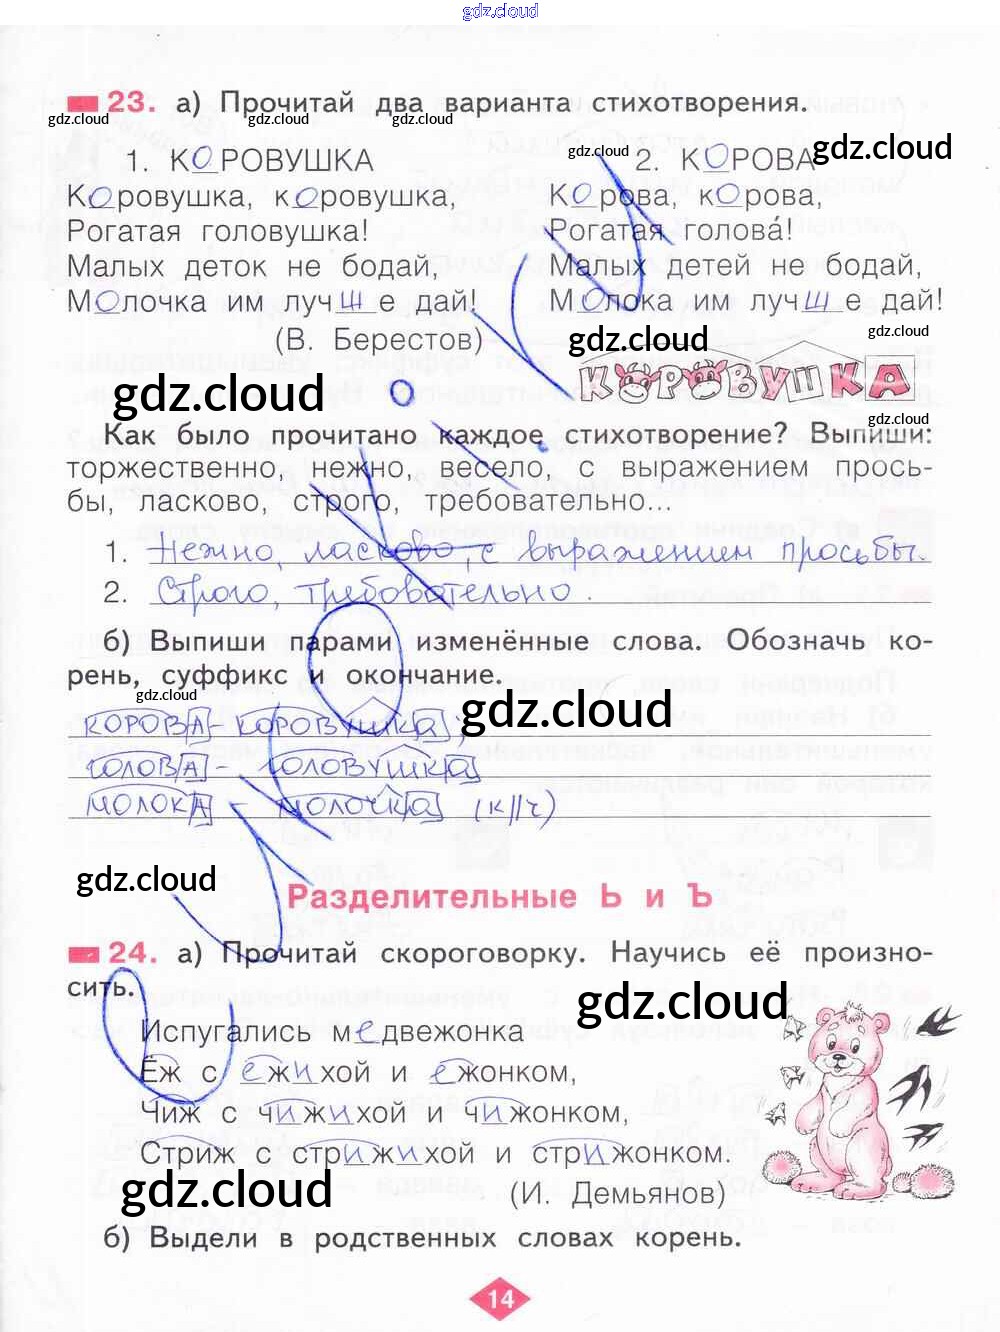 gdz.cloud
23. а) Прочитай два варианта стихотворения.
gdz.cloud gdz.cloud gdz.cloud
1. КОРОВУШКА
Коровушка, коровушка,
Рогатая головушка!
Малых деток не бодай,
Молочка им лучше дай!
(В. Берестов)
gdz.cloud gdz.cloud
2. КОРОВА
Корова, корова,
Рогатая голова́!
Малых детей не бодай,
Молока им лучше дай!
gdz.cloud gdz.cloud
КОРОВУШКА
gdz.cloud gdz.cloud
Как было прочитано каждое стихотворение? Выпиши:
торжественно нежно, весело, с выражением прось-
бы, ласково, строго, требовательно...
1. Нежно, ласково, с выражением просьбы.
2. Строго, требовательно.
б) Выпиши парами изменённые слова. Обозначь ко-
рень, суффикс и окончание.
gdz.cloud gdz.cloud
корова - коровушка;
голова - головушка
молока - молочка (к//ч)
gdz.cloud
Разделительные Ь и Ъ
24. а) Прочитай скороговорку. Научись её произно-
сить.
gdz.cloud
Испугались медвежонка
Ёж с ежихой и ежонком,
Чиж с чижихой и чижонком,
Стриж с стрижихой и стрижонком.
gdz.cloud
(И. Демьянов)
б) Выдели в родственных словах корень.
14